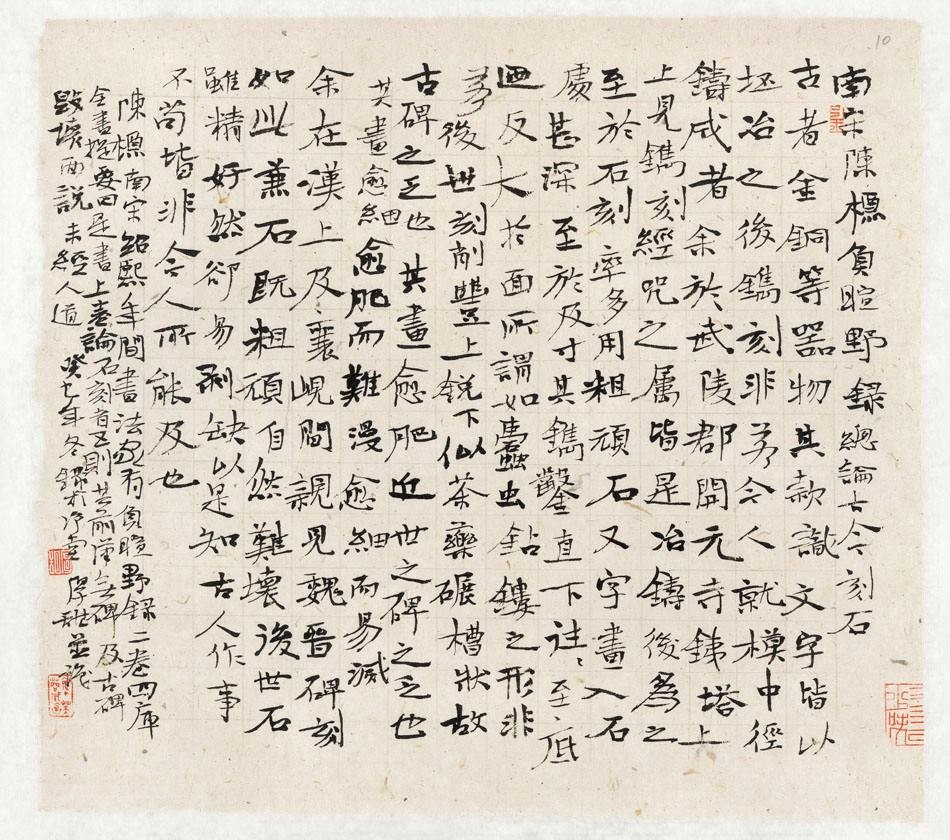 南宋陳槱負暄野錄 總論古今刻石
古者金銅等器物其款識文字皆以
坯冶之後鐫刻非若今人就模中徑
鑄成者余於武陵郡開元寺鐵塔上
上見鐫刻經咒之屬皆是冶鑄後為之
至於石刻率多用粗頑石又字畫入石
處甚深至於及寸其鐫鑿直下往々至底
迺反大於面所謂如蠹蟲鉆鏤之形非
若後世刻削豐上銳下似茶藥碾槽狀故
古碑之乏也其畫愈肥近世之碑之乏也
其畫愈細愈肥而難漫愈細而易滅
余在漢上及襄峴間親見魏晉碑刻
如此兼石既粗頑自然難壞後世石
雖精好然卻易剥缺以是知古人作事
不苟皆非今人所能及也
陳槱南宋紹熙年間書法家有負暄野錄二卷四庫
全書提要曰是書上卷論石刻者五則其前漢無碑及古碑
毀壞兩說未經人道 癸巳年冬錄於淨堂 並識
10